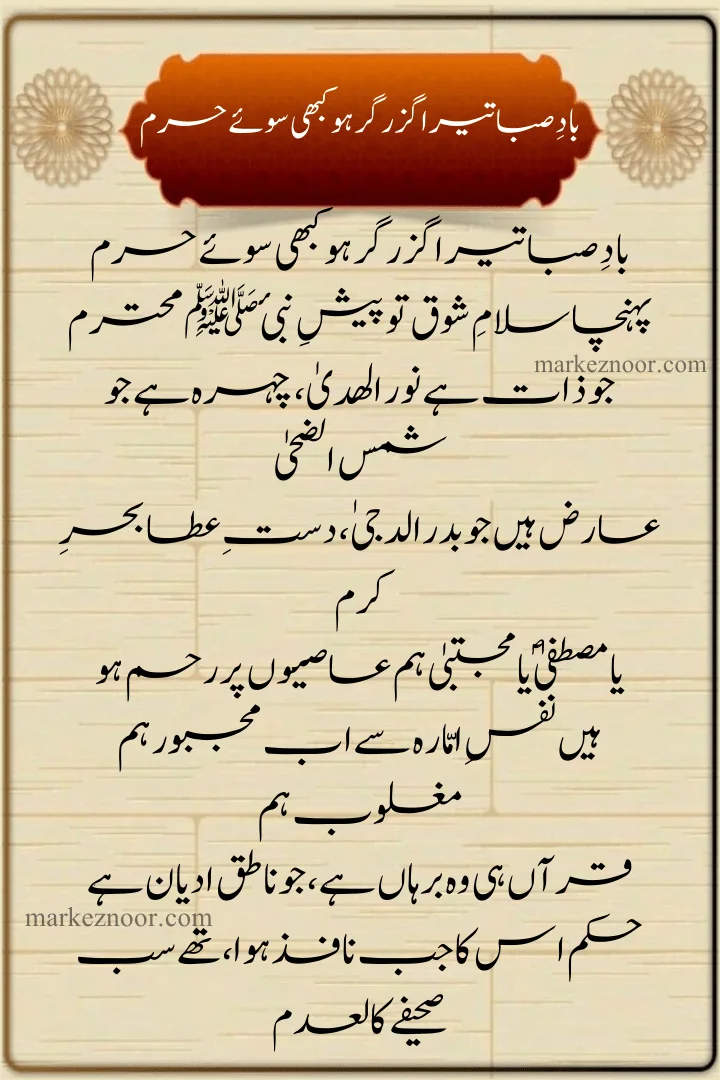 بادِ صبا تیرا گزر گر ہو کبھی سوئے حرم
بادِ صبا تیرا گزر گر ہو کبھی سوئے حرم
پہنچا سلامِ شوق تو پیشِ نبیِ ﷺ محترم
markeznoor.com
جو ذات ہے نور الھدیٰ، چہرہ ہے جو
شمس الضحیٰ
عارض ہیں جو بدر الدجیٰ، دستِ عطا بحرِ
کرم
یا مصطفیؐ یا مجتبیٰ ہم عاصیوں پر رحم ہو
ہیں نفسِ امّارہ سے اب مجبور ہم
مغلوب ہم
قرآں ہی وہ برہاں ہے، جو ناطق ادیان ہے
markeznoor.com
حکم اس کا جب نافذ ہوا، تھے سب
صحیفے کالعدم